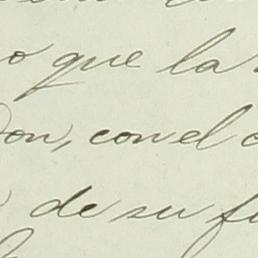 o que la
on, con el
de su fu